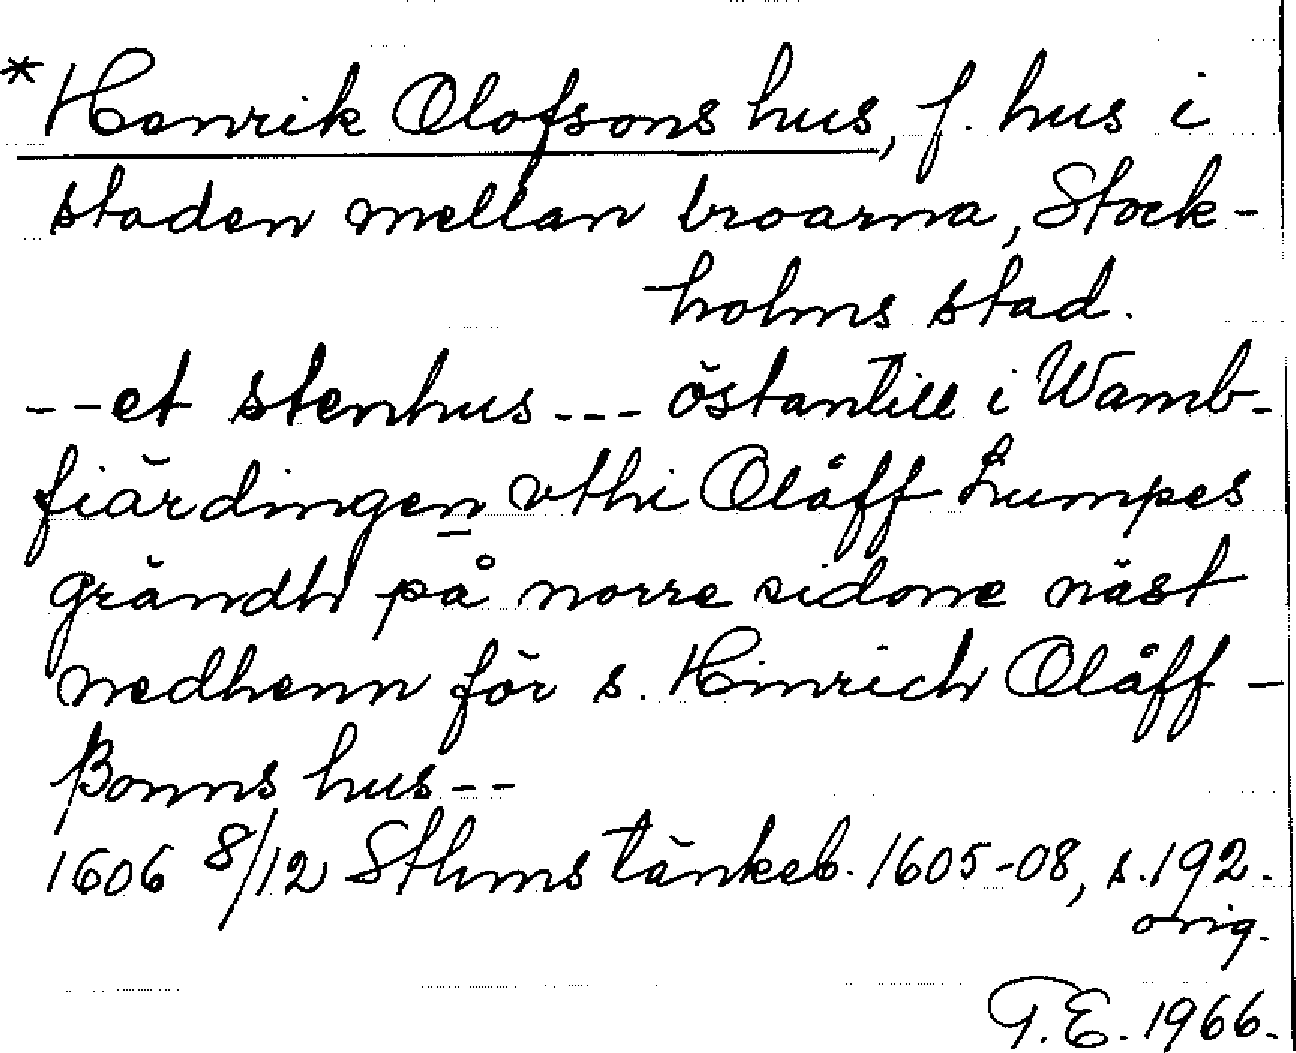 *Henrik Olofsons hus, f. hus i
staden mellan broarna, Stock-
holms stad.
--et stenhus --- östantill i Wamb-
fiärdingen vthi Olåff Lumpes
grändh på norre sidone näst
nedhenn för s. Hinrich Olåff-
ßonns hus--
1606 8/12 Sthms tänkeb. 1605-08, s. 192.
orig.
T.E. 1966.